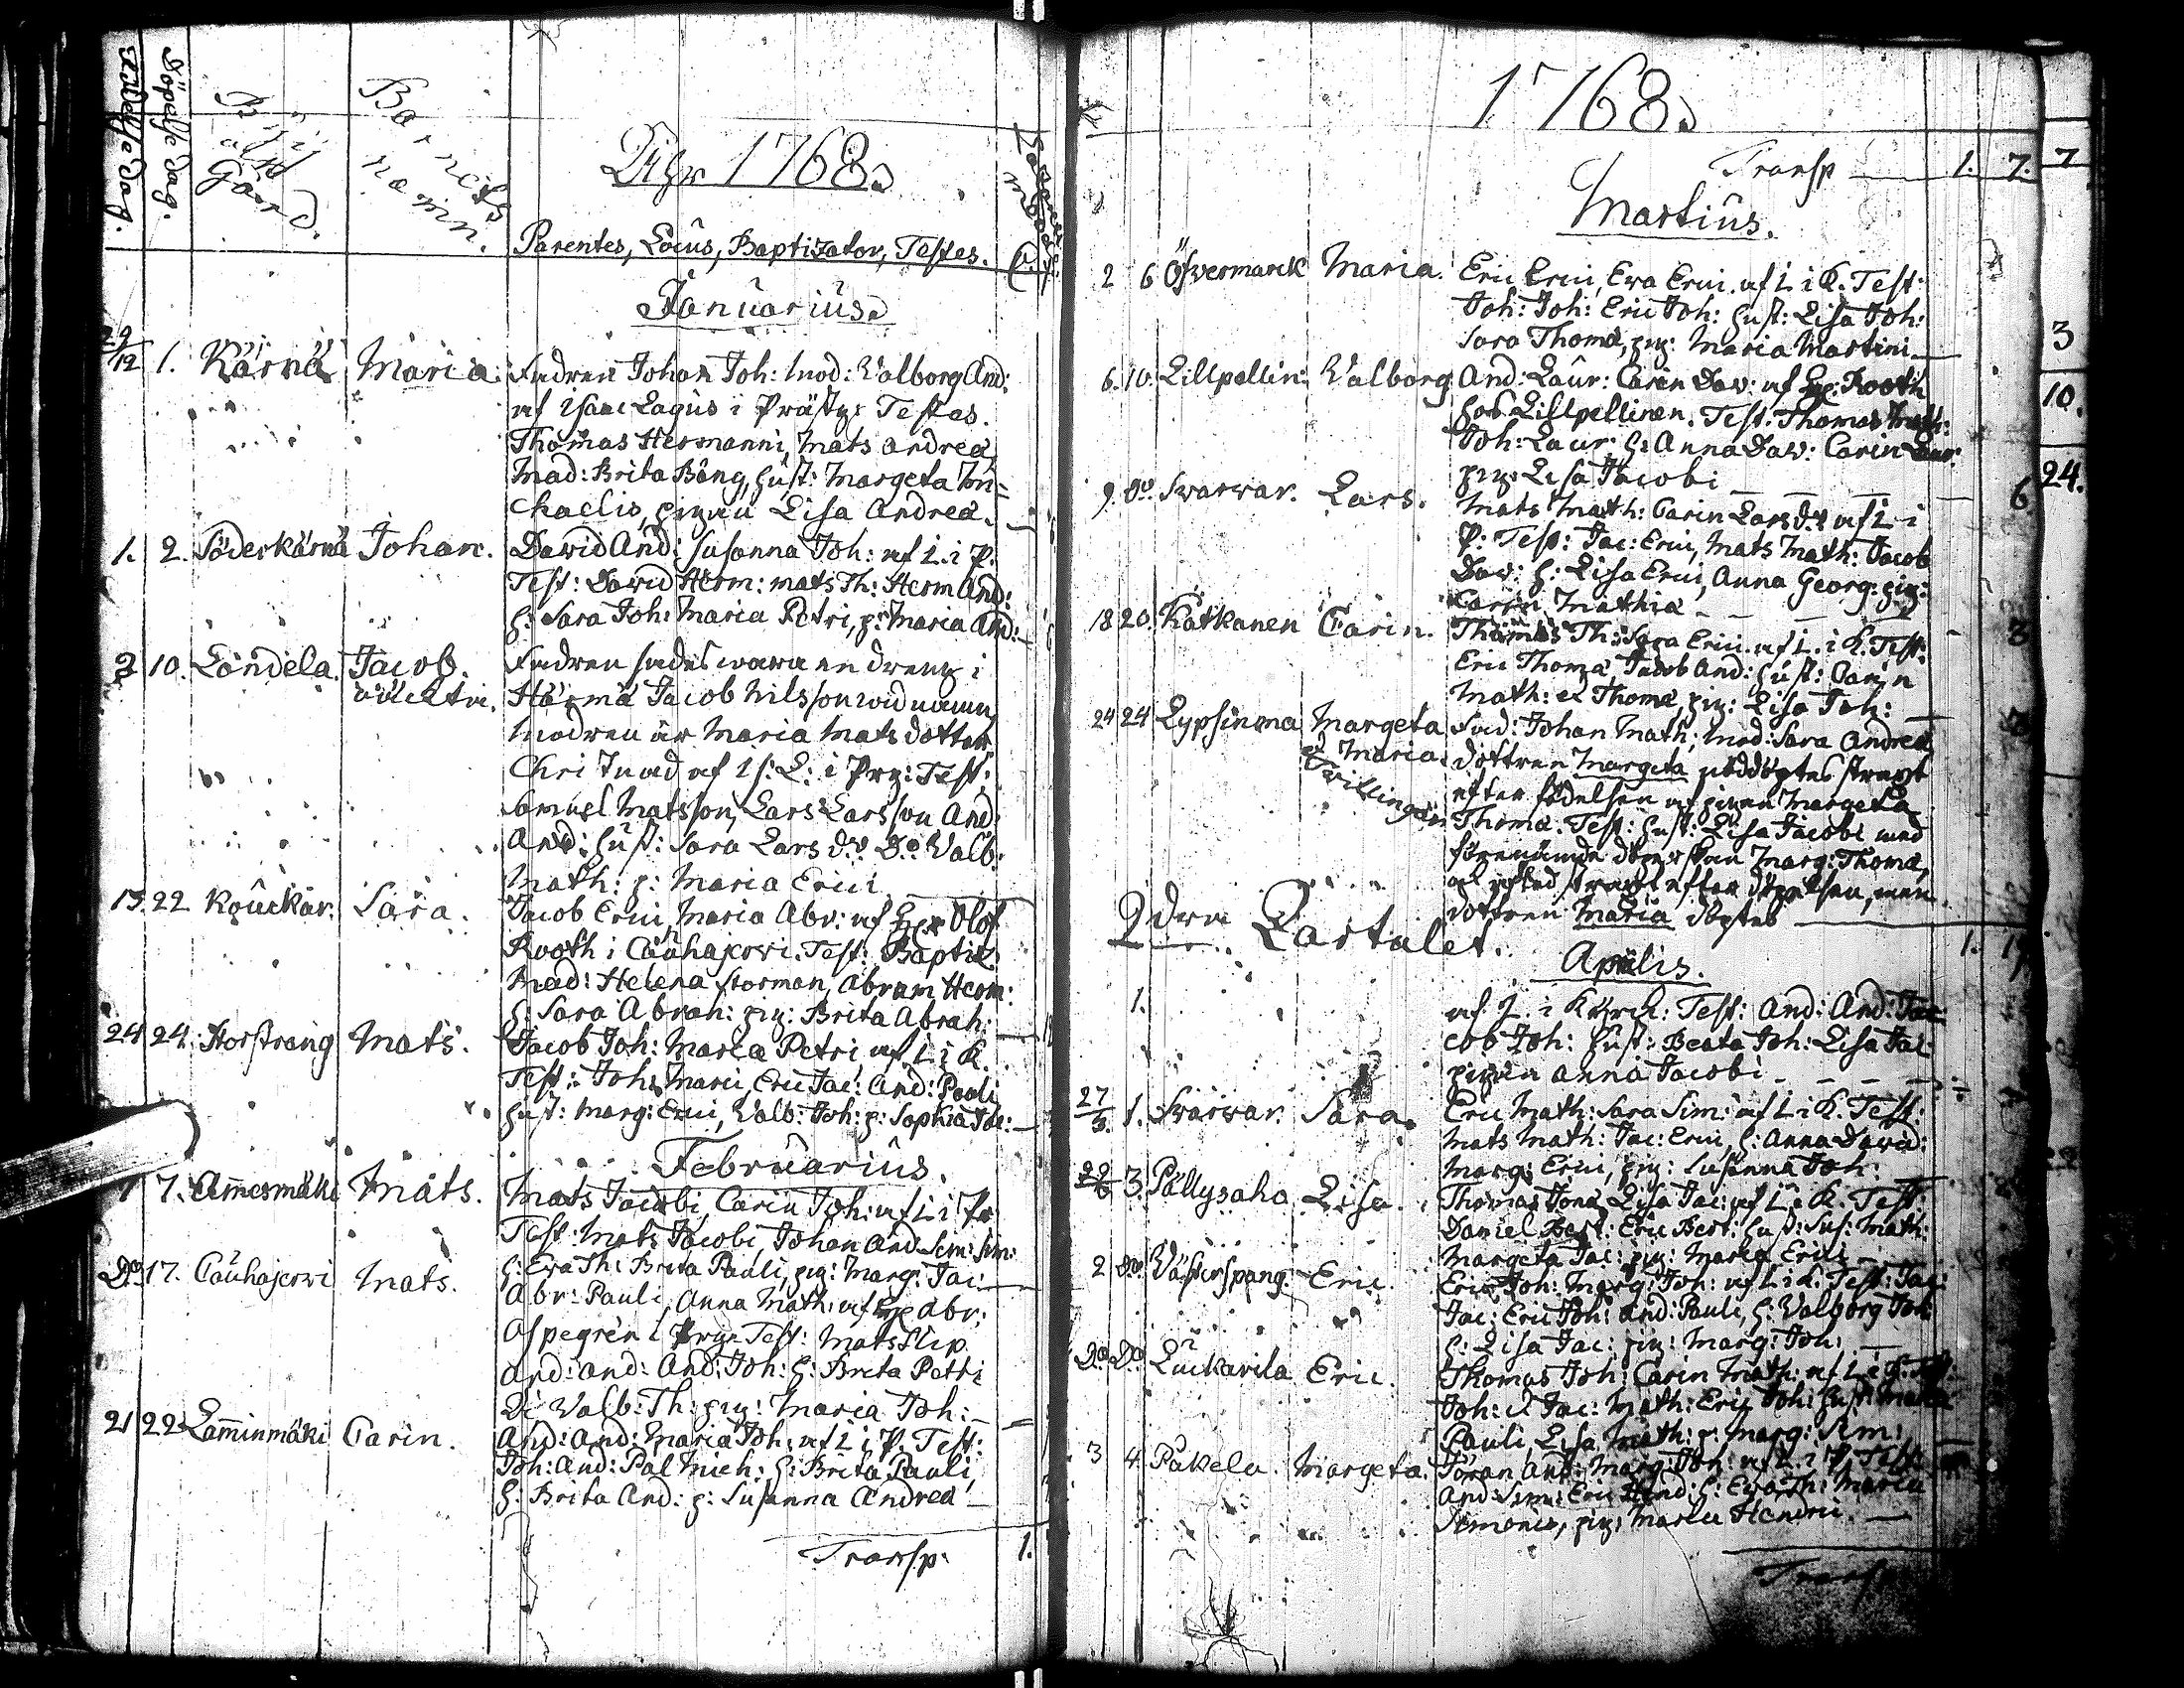 Födelse dag.
Döpelse dag.
By
alt
Gård.
Barnets
namn.
Åhr 1768.
Parentes, Locus, Baptizator, Testes.
Januarius.
29/12 1. Kärnä Maria. Fadren Johan Joh: Mod: Valborg And:
af Isaac Lagus i Prästg: Testes.
Thomas Hermanni, Mats Andreæ,
Mad: Brita Bång, hust: Margeta Mi=
chaelis, pigan Lisa Andreæ.
1. 2. Söderkärnä Johan. David And: Susanna Joh: af L. i P.
Test: David Herm: Mats Th: Herm And:
h: Sara Joh: Maria Petri, p: Maria And:
3 10. Löndela. Jacob. Fadren sades wara en dreng i
oäckta. Härmä Jacob Nilsson wid namn
Modren är Maria Matsdotter
af Is: L: i Prg: Test:
Samuel Matsson, Lars Larsson And:
And: hust: Sara Lars dr. Do Valb:
Math: p: Maria Erici
15. 22 Kouckar. Sara. Jacob Erici, Maria Abr: af Olof
Rooth i Cauhajerwi. Test: Baptiz:
Mad: Helena Storman, Abram Herm:
h: Sara Abrah: pig: Brita Abrah:
24 24. Storstrang Mats. Jacob Joh: Maria Petri af L i K.
Test: Joh: Marci, Eric Jac: And: Pauli
hust: Marg: Erici, Valb: Joh: p: Sophia Jac:
Februarius.
7. Ämesmäki Mats. Mats Jacobi, Carin Joh: af L i Pr
Test: Mats Jacobi, Johan And: Sim: Sim:
h: Eva Th: Brita Pauli, pig: Marg: Jac:
Do 17. Cauhajerwi Mats. Abr: Pauli, Anna Math: af Abr:
Aspegren i Prg: Test: Mats Slip
And: And: And: Joh: h: Brita Petri
Valb: Th: pig: Maria Joh:
21 22 Lam̄inmäki Carin. And: And: Maria Joh: af L i P. Test:
Joh: And: Pal Mich: h: Brita Pauli,
h: Brita And: p: Susanna Andreæ
Transp: 1.
1768.
Transp 1. 7. 7
Martius.
2 6 Öfvermarck Maria. Eric Erici, Eva Erici. af L i K. Test:
Joh: Joh: Eric Joh: hust: Lisa Joh:
Sara Thomæ, pig: Maria Martini 3
6. 10. Lillpellin: Valborg And: Laur: Carin Dav: af Rooth
hos Lillpellinen. Test: Thomas Math: 10.
Joh: Laur: h: Anna Dav: Carin Laur:
pig: Lisa Jacobi 24.
9. do. Svarvar. Lars. Mats Math: Carin Lars dr. af L i 6
P: Test: Jac: Erici, Mats Math: Jacob
Dav: h: Lisa Erici, Anna Georg: pig:
Carin Mathiæ
18 20. Katkanen Carin. Thomas Th: Sara Erici. af L. i K. Test:
Eric Thomæ, Jacob And: hust: Carin
Math: et Thomæ, pig: Lisa Joh:
24 24 Lypsinma Margeta Fad: Johan Math: Mod: Sara Andreæ
& Maria. dottren Margeta nöddöptes straxt
Tvillingar efter födelsen af pigan Margeta
Thomæ. Test: hust: Lisa Jacobi med
förenämde döperskan Marg: Thomæ,
straxt efter döpelsen, men
dottren Maria döptes
2dra Qartalet. 1.
Aprilis.
1. af L. i Kyrck: Test: And: And: Jac
cob Joh: hust: Beata Joh: Lisa Jac:
pigan Anna Jacobi
27/3. 1. Svarvar. Sara. Eric Math: Sara Sim: af L i K. Test:
Mats Math: Jac: Erici, h: Anna David:
Marg: Erici, pig: Susanna Joh:
3. Pällysaho Lisa. Thomas Jonæ, Lisa Jac: af L i K. Test:
Daniel Bert: Eric Bert: hust: Sus: Math:
Margeta Jac: pig: Maria Erici
2 do Västerspang Eric. Eric Joh: Marg: Joh: af L i K. Test: Jac:
Jac: Eric Joh: And: Pauli, h: Valborg Joh:
h: Lisa Jac: pig: Marg: Joh:
Do Do Luckarila Eric. Thomas Joh: Carin Math: af L i
Joh: & Jac: Math: Eric Joh: hust: Maria
Pauli, Lisa Math: p: Marg: Sim:
3 4. Pakela. Margeta. Jöran And: Marg: Joh: af L. i P. Test:
And: Sim: Eric Hend: h: Eva Th: Maria
Simonis, pig: Maria Hendrici.
Transp